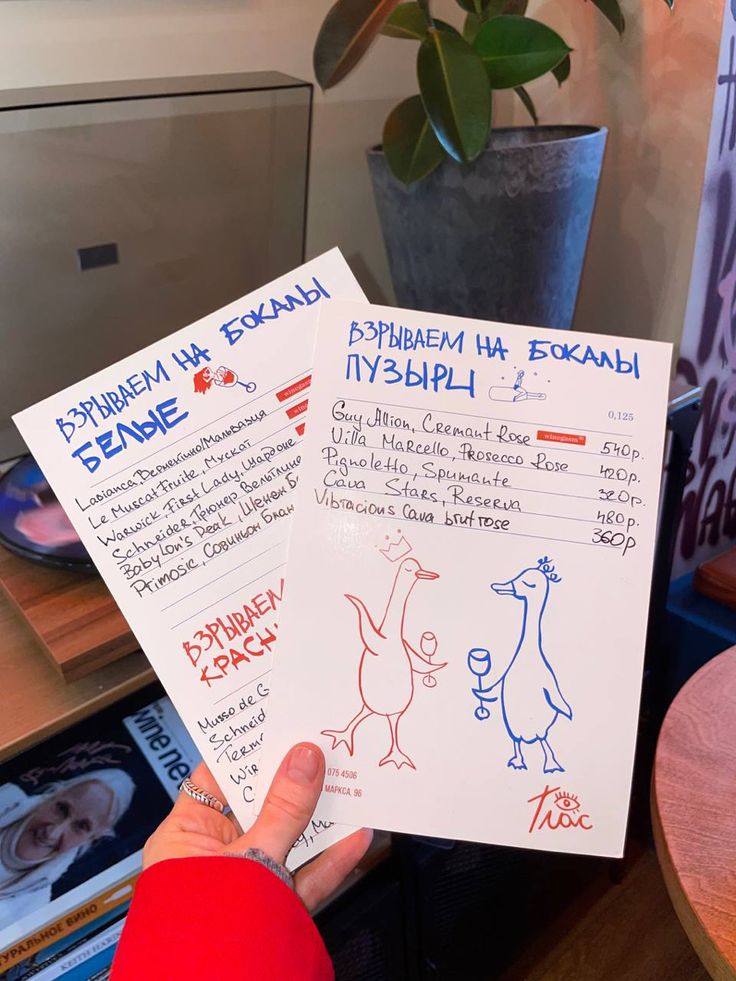 ВЗРЫВАЕМ НА БОКАЛЫ
БЕЛЫЕ
winegasm
winegasm
Labianca, Вернектино/Мальвазия
Le Muscat Fruite, Мускат
Warwick, First Lady, Шардоне
Schneider, Грюнер Вельтлине
Babylon's Peak, Шенен Б
Primosic, Совиньон Блан
ВЗРЫВАЕМ
КРАСН
Musso de
Schneid
Term
ВЗРЫВАЕМ НА БОКАЛЫ
ПУЗЫРЦ
0,125
Guy Allion, Cremant Rose winegasm 540р.
Villa Marcello, Prosecco Rose 420р.
Pignoletto, Spumante 320р.
Cava Stars, Reserva 480р.
Vibracious Cava brut rose 360р
075 4506
МАРКСА, 96
Глас
wine
ТУРАЛЬНОЕ ВИНО
KEITH HARIN